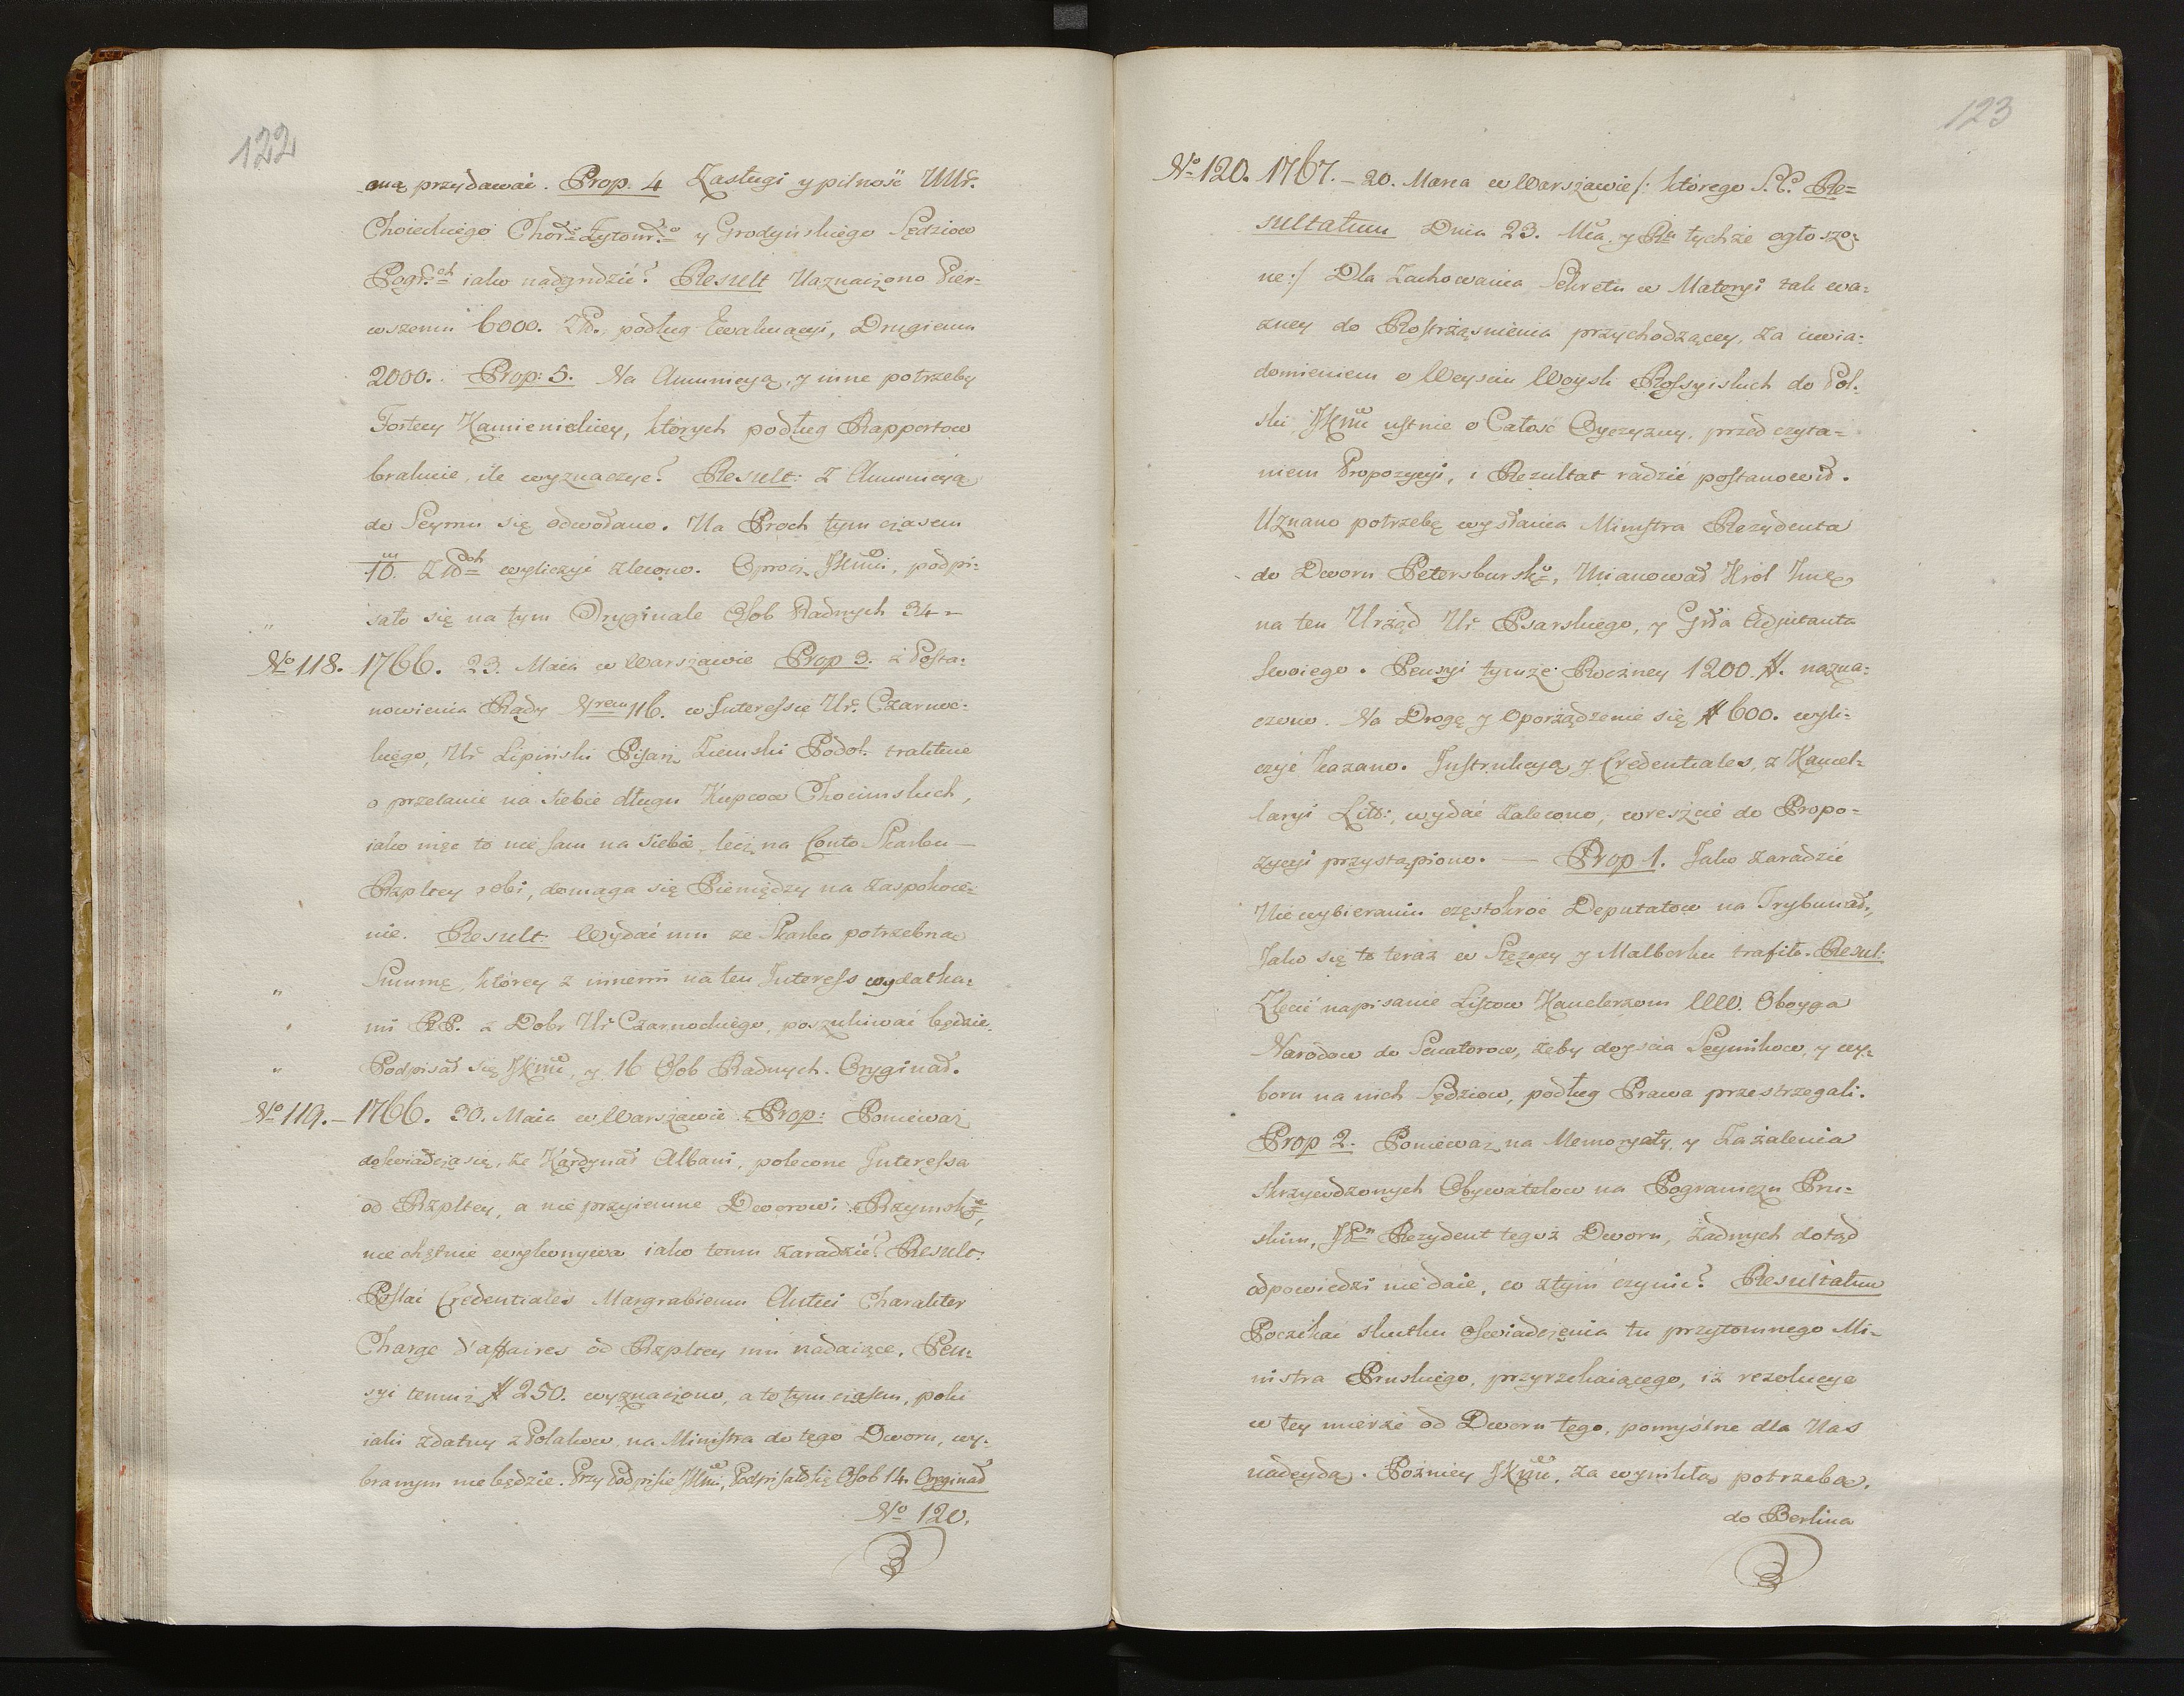 122
mą przydawać. Prop. 4 Zasługi y pilność UUr.
Choieckiego Chor:o Żytom:o y Grodyńskiego Sędziow
Pogr:ch iako nadgrodzić? Result Naznaczono Pier-
wszemu 6000. ZP. podług Ewaluacyi, Drugiemu
2000. Prop: 5. Na Amunicyą, y inne potrzeby
Fortecy Kamienieckiey, których podług Rapportow
brakuie, ile wyznaczyć? Result: Z Amunicyą
do Seymu się odwołano. Na Proch tym czasem
10. m ZP.ch wyliczyć zlecono. Oprocz JKMci, podpi-
sało się na tym Oryginale Osob Radnych 34 -
No 118. 1766. 23. Maia w Warszawie Prop 3. z Posta-
nowienia Rady Nrem 116. w Interessie Ur. Czarnec-
kiego, Ur Lipiński Pisarz Ziemski Podol: traktuie
o przelanie na siebie długu Kupcow Chocimskich,
iako więc to nie sam na siebie lecz na Conto Skarbu -
Rzpltey robi, domaga się Pieniędzy na zaspokoie-
nie. Result: Wydać mu ze Skarbu potrzebną
Summę, którey z innemi na ten Interess wydatka-
mi RP. z Dobr Ur Czarnockiego, poszukiwać będzie.
Podpisał się JKMć, y 16 Osob Radnych. Oryginał.
No 119. - 1766. 30. Maia w Warszawie Prop: Ponieważ
doświadcza się, że Kardynał Albani, polecone Interessa
od Rzpltey, a nie przyiemne Dworowi Rzymsk:,
nie chętnie wykonywa iako temu zaradzić? Result:
Posłać Credentiales Margrabiemu Antici Charakter
Charge d'affaires od Rzpltey mu nadaiące. Pen-
syi temuż # 250. wyznaczono, a to tym czasem, poki
iaki zdatny z Polakow na Ministra do tego Dworu, wy-
branym nie będzie. Przy Podpisie JKMci, Podpisało się Osob 14. Oryginał
No 120.
123
No 120. 1767. - 20. Marca w Warszawie /: którego S.C. Re=
sultatum Dnia 23. Mca y Ru tychże ogłoszo-
ne:/ Dla Zachowania Sekretu w Materyi tak wa-
żney do Rostrząsnienia przychodzącey, za uwia-
domieniem o Weysciu Woysk Rossyiskich do Pol-
ski JKMć ustnie o Całość Oyczyzny, przed czyta-
niem Propozycyi, i Rezultat radzić postanowił.
Uznano potrzebę wysłania Ministra Rezydenta
do Dworu Petersbursk:o, Mianował Król Jmć
na ten Urząd Ur Psarskiego, y Grła Adjutanta
Swoiego. Pensyi tymże Roczney 1200. #. nazna-
czono. Na Drogę y oporządzenie się # 600. wyli-
czyć kazano. Instrukcyą, y Credentiales, z Kancel-
laryi Litt:, wydać zalecono, wreszcie do Propo-
zycyi przystąpiono. - Prop 1. Jako zaradzić
Nie wybieraniu częstokroć Deputatow na Trybunał,
Jako się to teraz w Stężycy y Malborku trafiło. Resul:
Zlecić napisanie Listow Kanclerzom WW. Oboyga
Narodow do Senatorow, żeby doyścia Seymikow, y wy-
boru na nich Sędziow, podług Prawa przestrzegali.
Prop 2. Ponieważ na Memoryały, y Zażalenia
skrzywdzonych Obywatelow na Pograniczu Pru-
skim, JPn Rezydent tegoż Dworu, żadnych dotąd
odpowiedzi nie daie, co z tym czynić? Resultatum
Poczekać skutku oświadczenia tu przytomnego Mi-
nistra Pruskiego, przyrzekaiącego, iż rezolucye
w tey mierze od Dworu tego, pomyślne dla Nas
nadeydą. Poźniey JKMć, za wynikłą potrzebą,
do Berlina